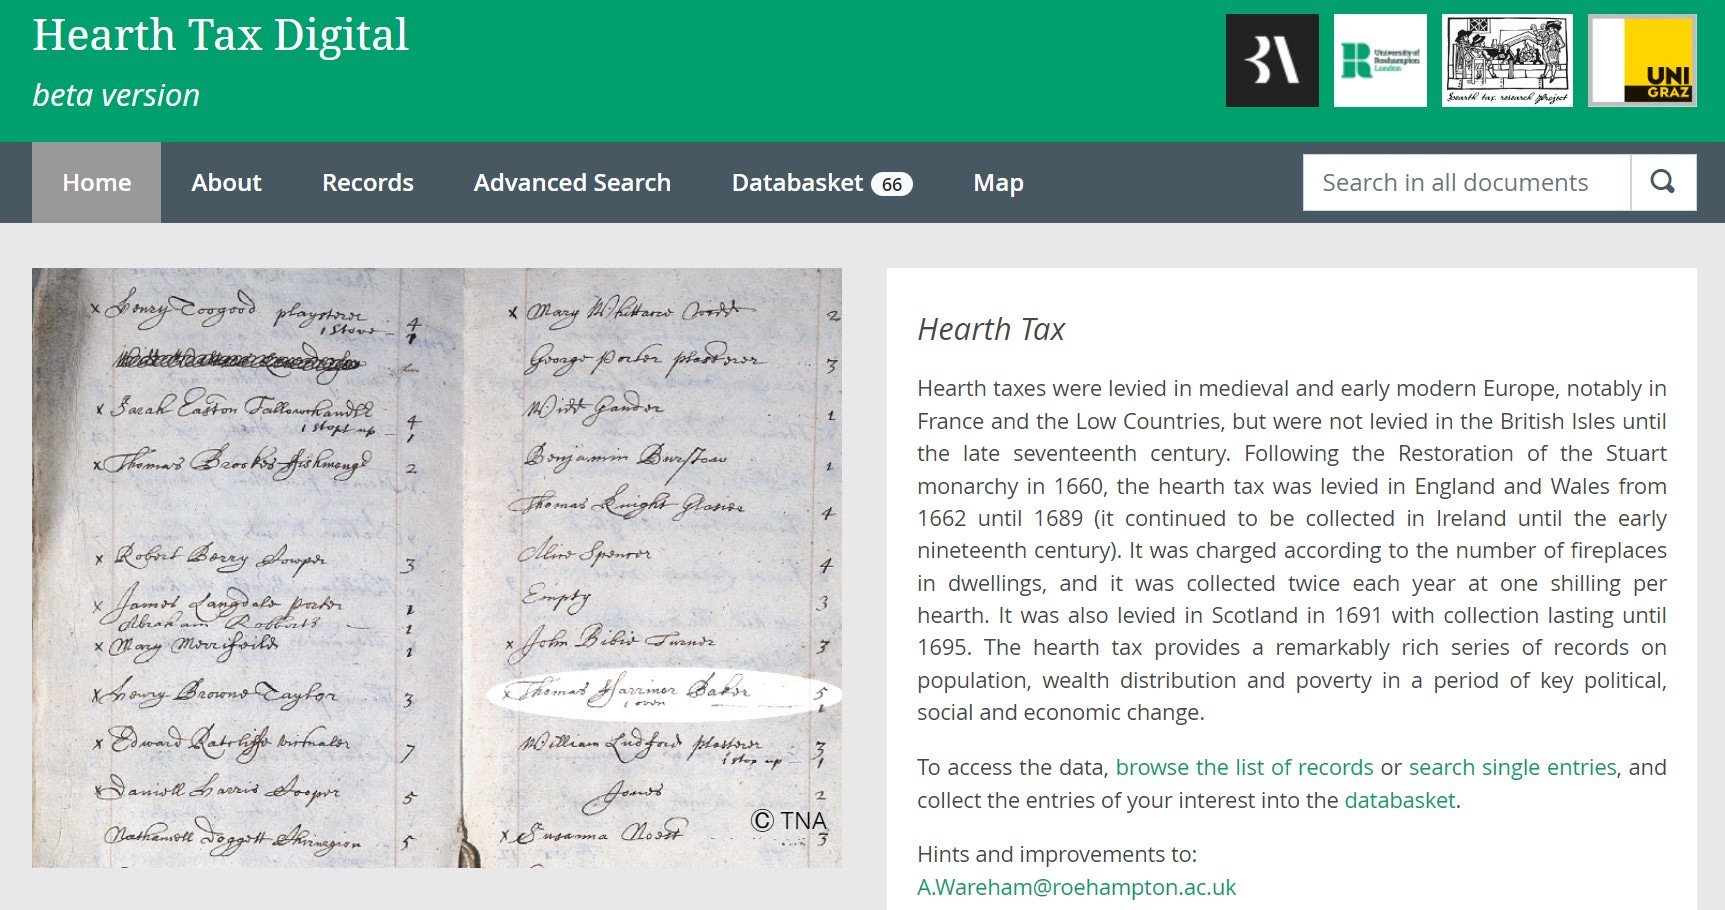 Hearth Tax Digital
beta version
University of
Roehampton
London
hearth tax research project
UNI
GRAZ
Home
About
Records
Advanced Search
Databasket 66
Map
Search in all documents
x Henry Toogood playsterer 4
1 Stove 1
x Sarah Easton Tallowchandlr 4
1 stopt up 1
x Thomas Brookes ffishmongr 2
x Robert Berry Cowper 3
x James Langdale porter 1
Abraham Robberts 1
x Mary Merrifeild 1
x Henry Browne Taylor 3
x Edward Ratcliffe victualer 7
x Daniell Harris Cooper 5
Nathaniell Doggett 5
x Mary Whittacre 2
George Porter plasterer 3
Widd Gander 1
Benjamin Burstow 1
Thomas Knight Glasier 4
Alice Spencer 4
Empty 3
x John Bibie Turner 3
x Thomas Farriner Baker 5
1 oven 1
William Ludford plasterer 3
1 stop up 1
Jones 2
x Susanna Noest 3
© TNA
Hearth Tax
Hearth taxes were levied in medieval and early modern Europe, notably in
France and the Low Countries, but were not levied in the British Isles until
the late seventeenth century. Following the Restoration of the Stuart
monarchy in 1660, the hearth tax was levied in England and Wales from
1662 until 1689 (it continued to be collected in Ireland until the early
nineteenth century). It was charged according to the number of fireplaces
in dwellings, and it was collected twice each year at one shilling per
hearth. It was also levied in Scotland in 1691 with collection lasting until
1695. The hearth tax provides a remarkably rich series of records on
population, wealth distribution and poverty in a period of key political,
social and economic change.
To access the data, browse the list of records or search single entries, and
collect the entries of your interest into the databasket.
Hints and improvements to:
A.Wareham@roehampton.ac.uk